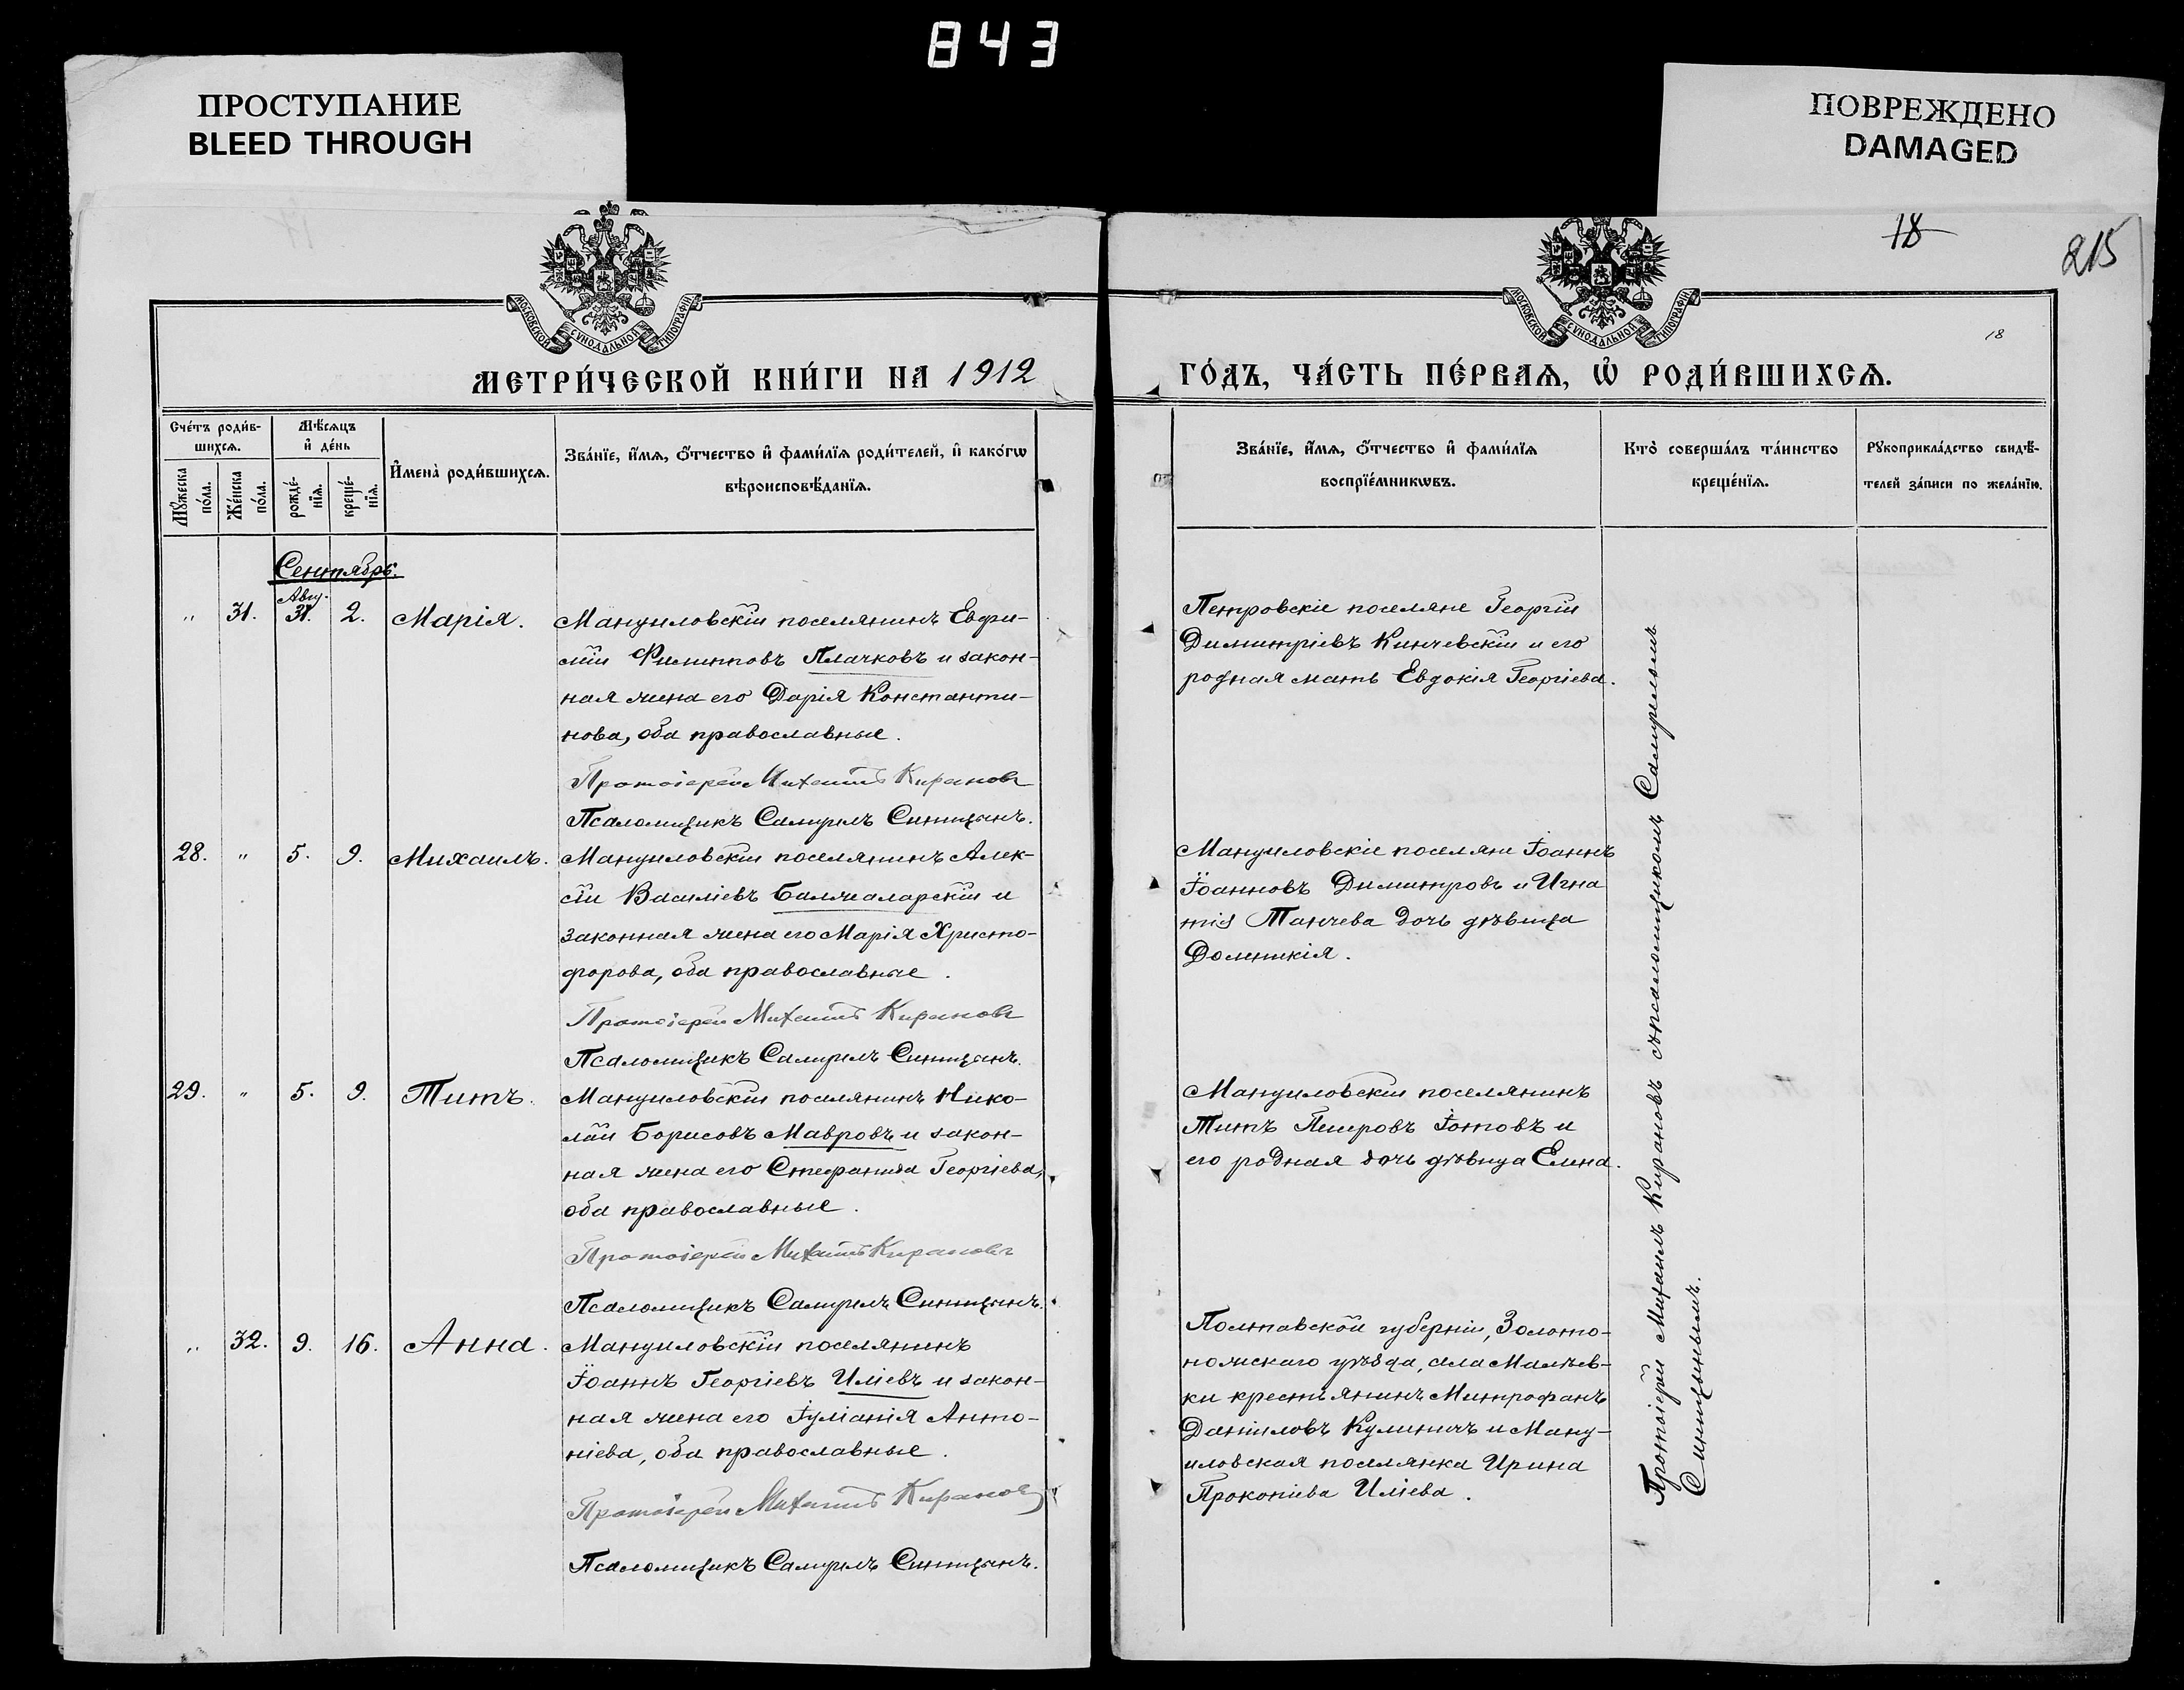 843
ПРОСТУПАНИЕ
BLEED THROUGH
ПОВРЕЖДЕНО
DAMAGED
18
215
18
МОСКОВСКОЙ СѴНОДАЛЬНОЙ ТИПОГРАФІИ
МОСКОВСКОЙ СѴНОДАЛЬНОЙ ТИПОГРАФІИ
МЕТРИ́ЧЕСКОЙ КНИ́ГИ НА 1912
ГО́ДЪ, ЧА́СТЬ ПЕ́РВАѦ, Ѡ҆ РОДИ́ВШИХСѦ.
Сче́тъ роди́в-
шихсѧ.
Мѣ́сѧцъ
и҆ де́нь
Мꙋ́жеска
по́ла.
Же́нска
по́ла.
рожде́-
нїѧ.
креще́-
нїѧ.
И҆мена̀ роди́вшихсѧ.
Зва́нїе, и҆́мѧ, ѻ҆́тчество и҆ фами́лїѧ роди́телей, и҆ како́гѡ
вѣроисповѣ́данїѧ.
Зва́нїе, и҆́мѧ, ѻ҆́тчество и҆ фами́лїѧ
воспрїе́мникѡвъ.
Кто̀ соверша́лъ та́инство
креще́нїѧ.
Рꙋкоприкла́дство свидѣ́-
телей за́писи по жела́нїю.
Сентябрь.
Авг.
" 31. 31. 2. Марія.
Мануиловскій поселянинъ Евфи-
мій Филипповъ Плачковъ и закон-
ная жена его Дарія Константи-
нова, оба православные.
Протоіерей Михаилъ Кирановъ
Псаломщикъ Самуилъ Синицынъ.
Петровскіе поселяне Георгій
Димитріевъ Кинчевскій и его
родная мать Евдокія Георгіева.
28. " 5. 9. Михаилъ.
Мануиловскій поселянинъ Алек-
сій Василіевъ Балжаларскій и
законная жена его Марія Христо-
форова, оба православные.
Протоіерей Михаилъ Кирановъ
Псаломщикъ Самуилъ Синицынъ.
Мануиловскіе поселяне Іоаннъ
Іоанновъ Димитровъ и Игна
тія Танчева дочь дѣвица
Домникія.
29. " 5. 9. Титъ.
Мануиловскій поселянинъ Нико-
лай Борисовъ Мавровъ и закон-
ная жена его Стефанида Георгіева,
оба православные.
Протоіерей Михаилъ Кирановъ
Псаломщикъ Самуилъ Синицынъ.
Мануиловскій поселянинъ
Титъ Петровъ Іотовъ и
его родная дочь дѣвица Елена.
" 32. 9. 16. Анна.
Мануиловскій поселянинъ
Іоаннъ Георгіевъ Иліевъ и закон-
ная жена его Іуліанія Анто-
ніева, оба православные.
Протоіерей Михаилъ Кирановъ
Псаломщикъ Самуилъ Синицынъ.
Полтавской губерніи, Золото-
ножскаго уѣзда, села Мальев-
ки крестьянинъ Митрофанъ
Даніиловъ Кулиничъ и Ману-
иловская поселянка Ирина
Прокопіева Иліева.
Протоіерей Михаилъ Кирановъ съ псаломщикомъ Самуиломъ
Синицынымъ.